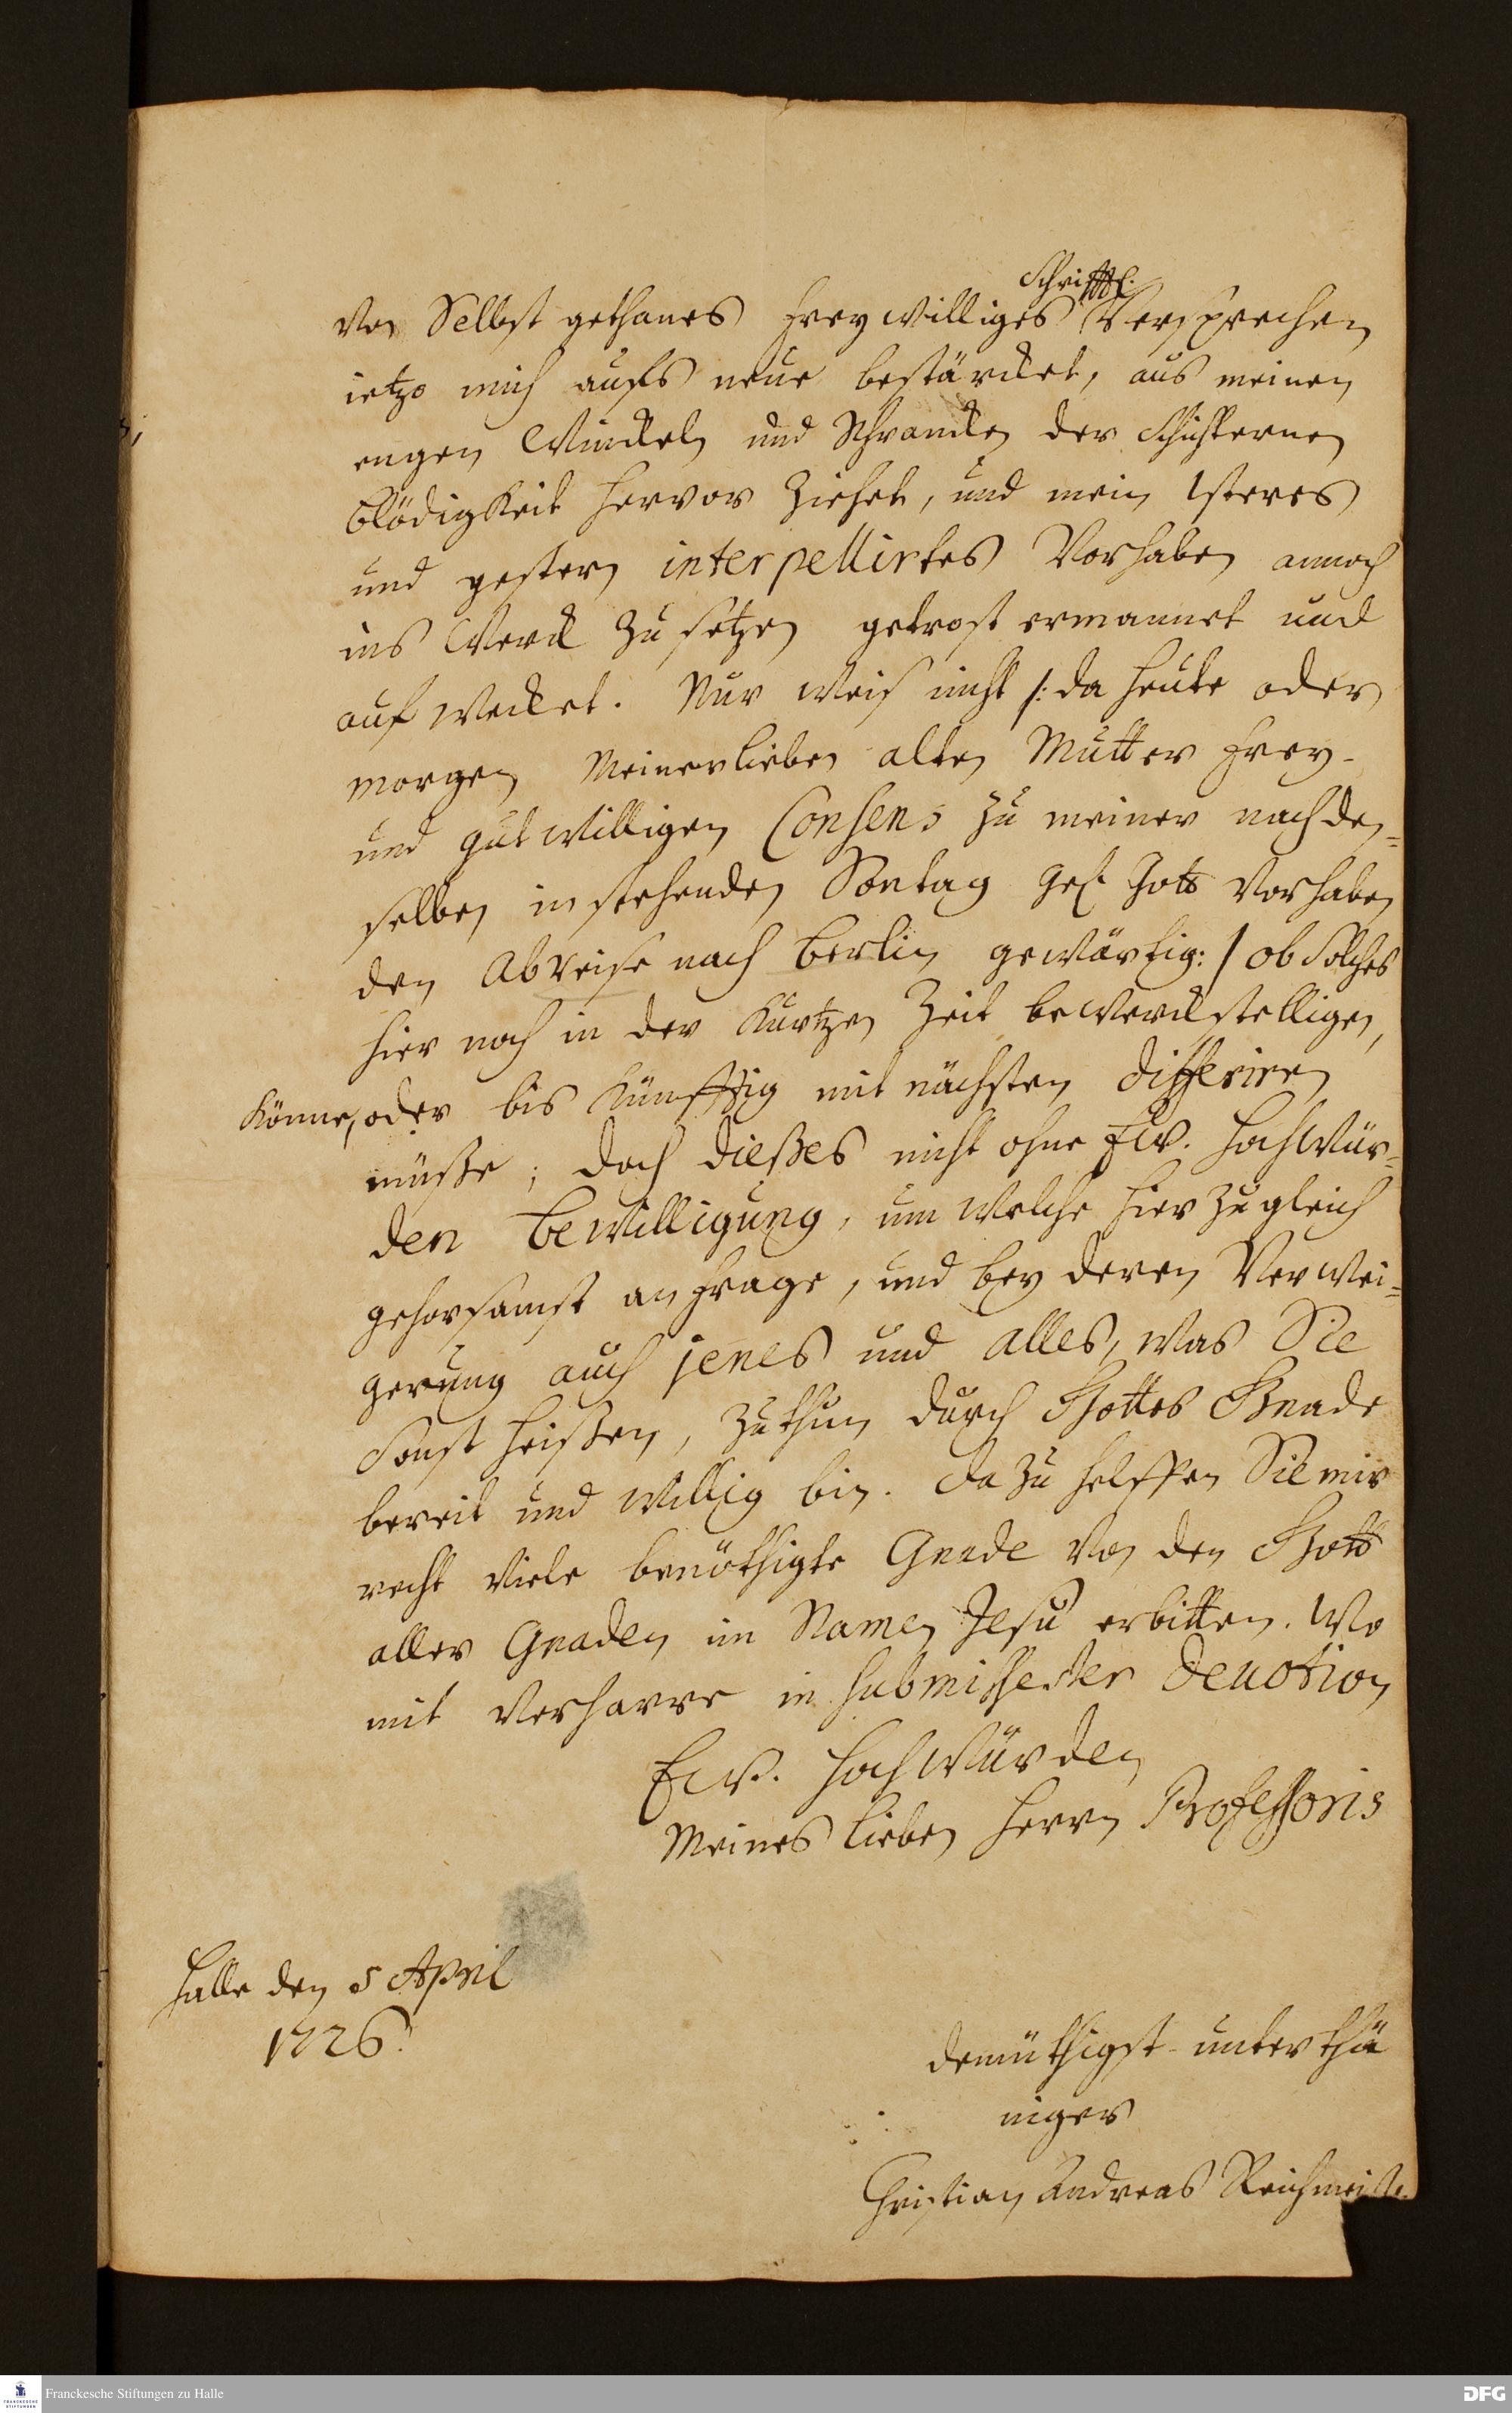 Schrifftl.
von Selbst gethanes freywilliges Versprechen
ietzo mich aufs neue bestärcket, aus meinen
engen Winckeln und Schrancken der Schüchternen
blödigkeit hervor ziehet, und mein 1steres
und gestern interpellirtes Vorhaben annoch
ins Werck zu setzen getrost ermannet und
aufwecket. Nur weis nicht /: da heute oder
morgen meiner lieben alten Mutter frey-
und gutwilligen Consens zu meiner nach den=
selben instehenden Sontag Gel. Gott vorhaben
den Abreise nach Berlin gewärtig :/ ob Solches
hier noch in der kurtzen Zeit bewerckstelligen,
könne, oder bis künfftig mit nächsten differiren
müsse; doch dieses nicht ohne Ew. Hochwür=
den bewilligung, um welche hier zugleich
gehorsamst anfrage, und bey deren Verwei=
gerung auch jenes und alles, was Sie
Sonst heissen, zuthun durch Gottes Gnade
bereit und willig bin. Dazu helffen Sie mir
recht viele benöthigte Gnade von den Gott
aller Gnaden im Namen Jesu erbitten. Wo
mit verharre in submissester Devotion
Ew. Hochwürden
Meines lieben Herrn Professoris
Halle den 5 April
1726.
demüthigst-unterthä
niger
Christian Andreas Reichmeist
Franckesche Stiftungen zu Halle
DFG